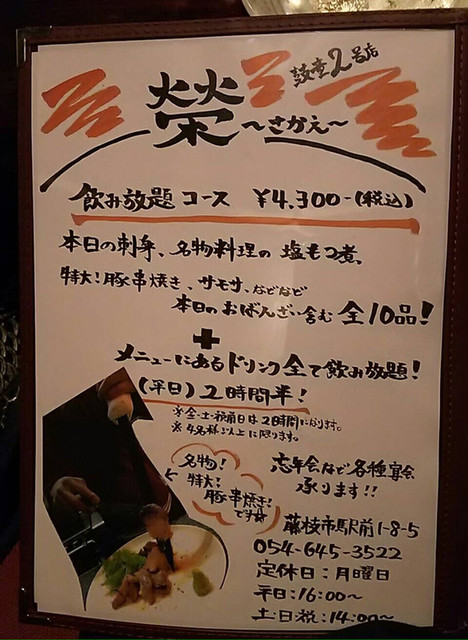 鼓童2号店
榮
～さかえ～
飲み放題コース ¥4,300-(税込)
本日の刺身、名物料理の塩もつ煮、
特大!豚串焼き、サモサ、などなど
本日のおばんざい含む 全10品!
+
メニューにあるドリンク全て飲み放題!
(平日)2時間半!
※金・土・祝前日は2時間になります。
※4名様以上に限ります。
名物!
特大!
豚串焼き!
です
忘年会など各種宴会
承ります!!
藤枝市駅前1-8-5
054-645-3522
定休日:月曜日
平日:16:00～
土日祝:14:00～